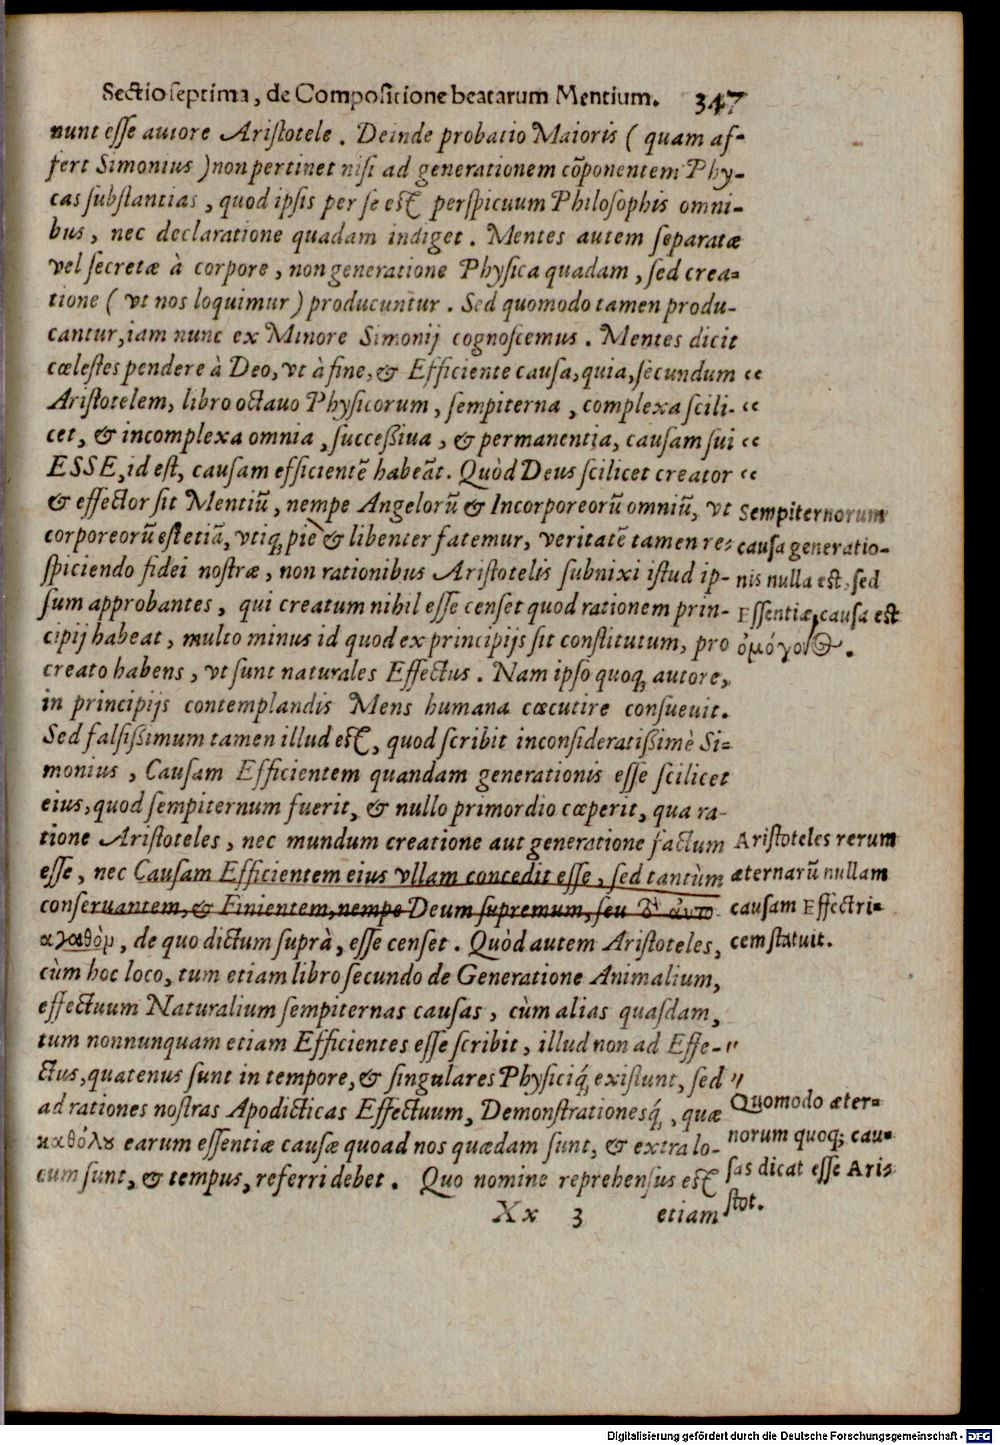 Sectio septima, de Compositione beatarum Mentium. 347
nunt esse autore Aristotele. Deinde probatio Maioris (quam af-
fert Simonius) non pertinet nisi ad generationem cōponentem Phy-
cas substantias, quod ipsis per se est perspicuum Philosophis omni-
bus, nec declaratione quadam indiget. Mentes autem separatæ
vel secretæ à corpore, non generatione Physica quadam, sed crea-
tione (vt nos loquimur) producuntur. Sed quomodo tamen produ-
cantur, iam nunc ex Minore Simonij cognoscemus. Mentes dicit
cœlestes pendere à Deo, vt à fine, & Efficiente causa, quia, secundum “
Aristotelem, libro octauo Physicorum, sempiterna, complexa scili- “
cet, & incomplexa omnia, successiua, & permanentia, causam sui “
ESSE, id est, causam efficientē habeāt. Quòd Deus scilicet creator “
& effector sit Mentiū, nempe Angelorū & Incorporeorū omniū, vt
corporeorū est etiā, vtiq; piè & libenter fatemur, veritatē tamen re-
spiciendo fidei nostræ, non rationibus Aristotelis subnixi istud ip-
sum approbantes, qui creatum nihil esse censet quod rationem prin-
cipij habeat, multo minus id quod ex principijs sit constitutum, pro
creato habens, vt sunt naturales Effectus. Nam ipso quoq; autore,
in principijs contemplandis Mens humana cœcutire consueuit.
Sed falsissimum tamen illud est, quod scribit inconsideratissimè Si-
monius, Causam Efficientem quandam generationis esse scilicet
eius, quod sempiternum fuerit, & nullo primordio cœperit, qua ra-
tione Aristoteles, nec mundum creatione aut generatione factum
esse, nec Causam Efficientem eius vllam concedit esse, sed tantùm
conseruantem, & Finientem, nempe Deum supremum, seu αὐτο-
αγαθὸν, de quo dictum suprà, esse censet. Quòd autem Aristoteles,
cùm hoc loco, tum etiam libro secundo de Generatione Animalium,
effectuum Naturalium sempiternas causas, cùm alias quasdam,
tum nonnunquam etiam Efficientes esse scribit, illud non ad Effe- "
ctus, quatenus sunt in tempore, & singulares Physiciq́; existunt, sed "
ad rationes nostras Apodicticas Effectuum, Demonstrationesq́;, quæ
καθόλȣ earum essentiæ causæ quoad nos quædam sunt, & extra lo-
cum sunt, & tempus, referri debet. Quo nomine reprehensus est
Xx 3 etiam
Sempiternorum
causa generatio-
nis nulla est, sed
Essentiæ, causa est
Aristoteles rerum
æternarū nullam
causam Effectri-
cem statuit.
Quomodo æter-
norum quoq; cau-
sas dicat esse Aris-
stot.
Digitalisierung gefördert durch die Deutsche Forschungsgemeinschaft - DFG